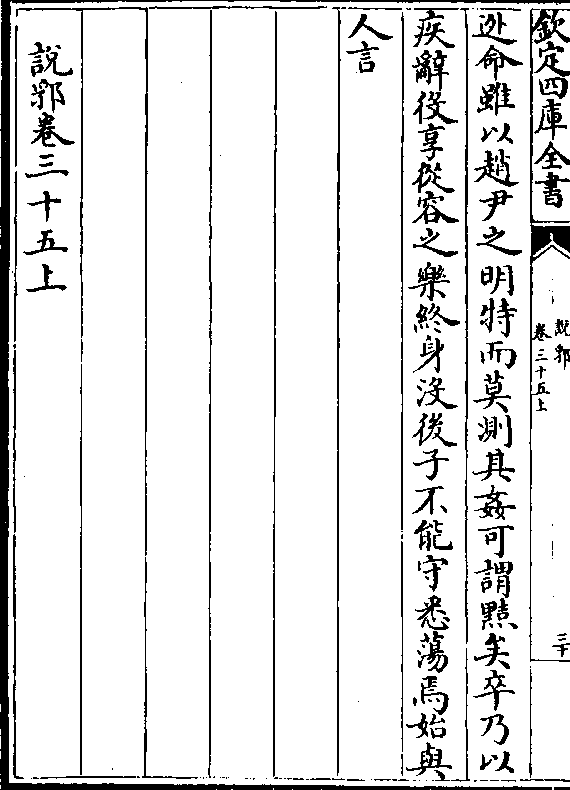 欽定四庫全書
說郛
卷三十五上
三十
迯命雖以趙尹之明特而莫測其姦可謂黠矣卒乃以
疾辭役享從容之樂終身沒後子不能守悉蕩焉始與
人言
說郛卷三十五上